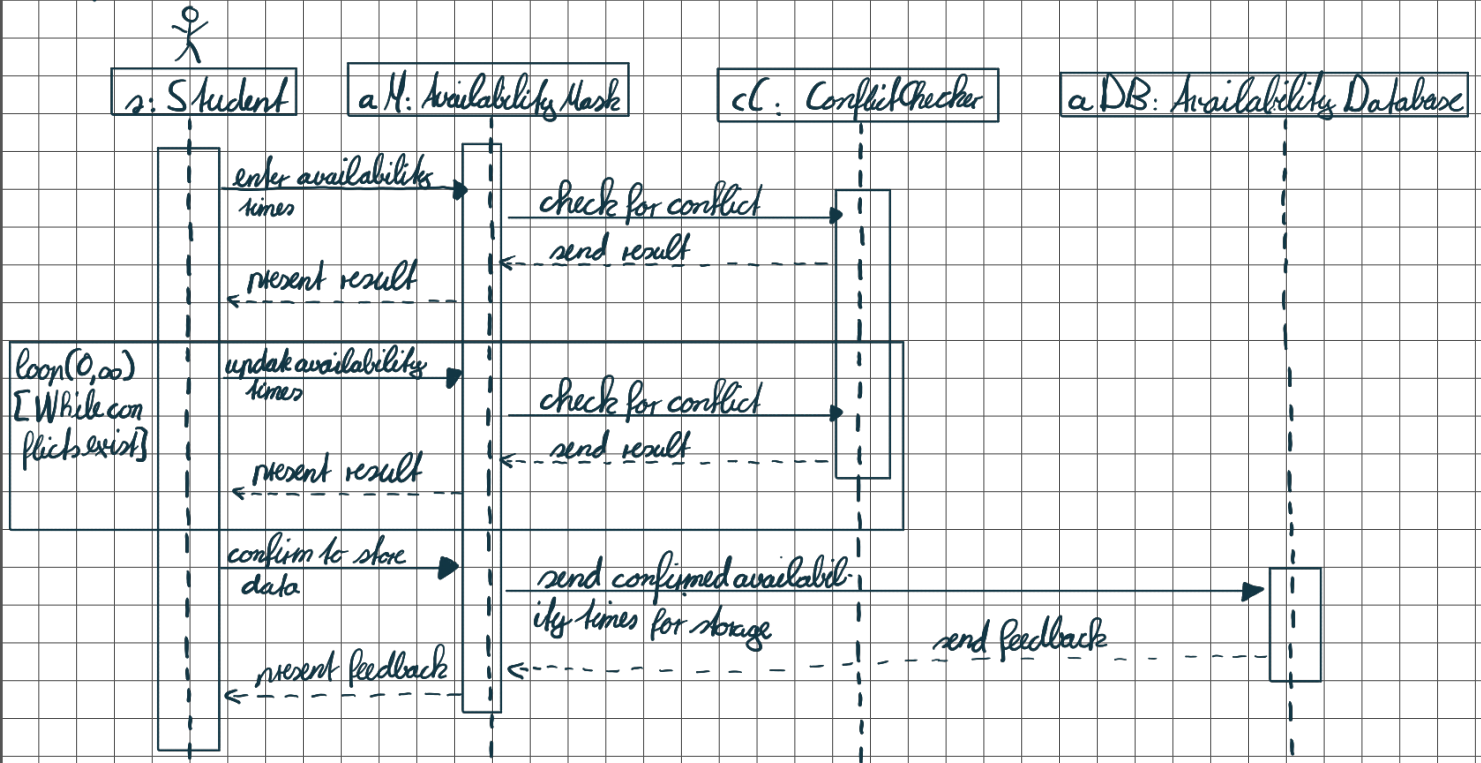 s: Student
aM: Availability Mask
cC: ConflictChecker
aDB: Availability Database
enter availability
times
check for conflict
send result
present result
loop(0,∞)
[While con
flicts exist]
update availability
times
check for conflict
send result
present result
confirm to store
data
send confirmed availabil-
ity times for storage
send feedback
present feedback